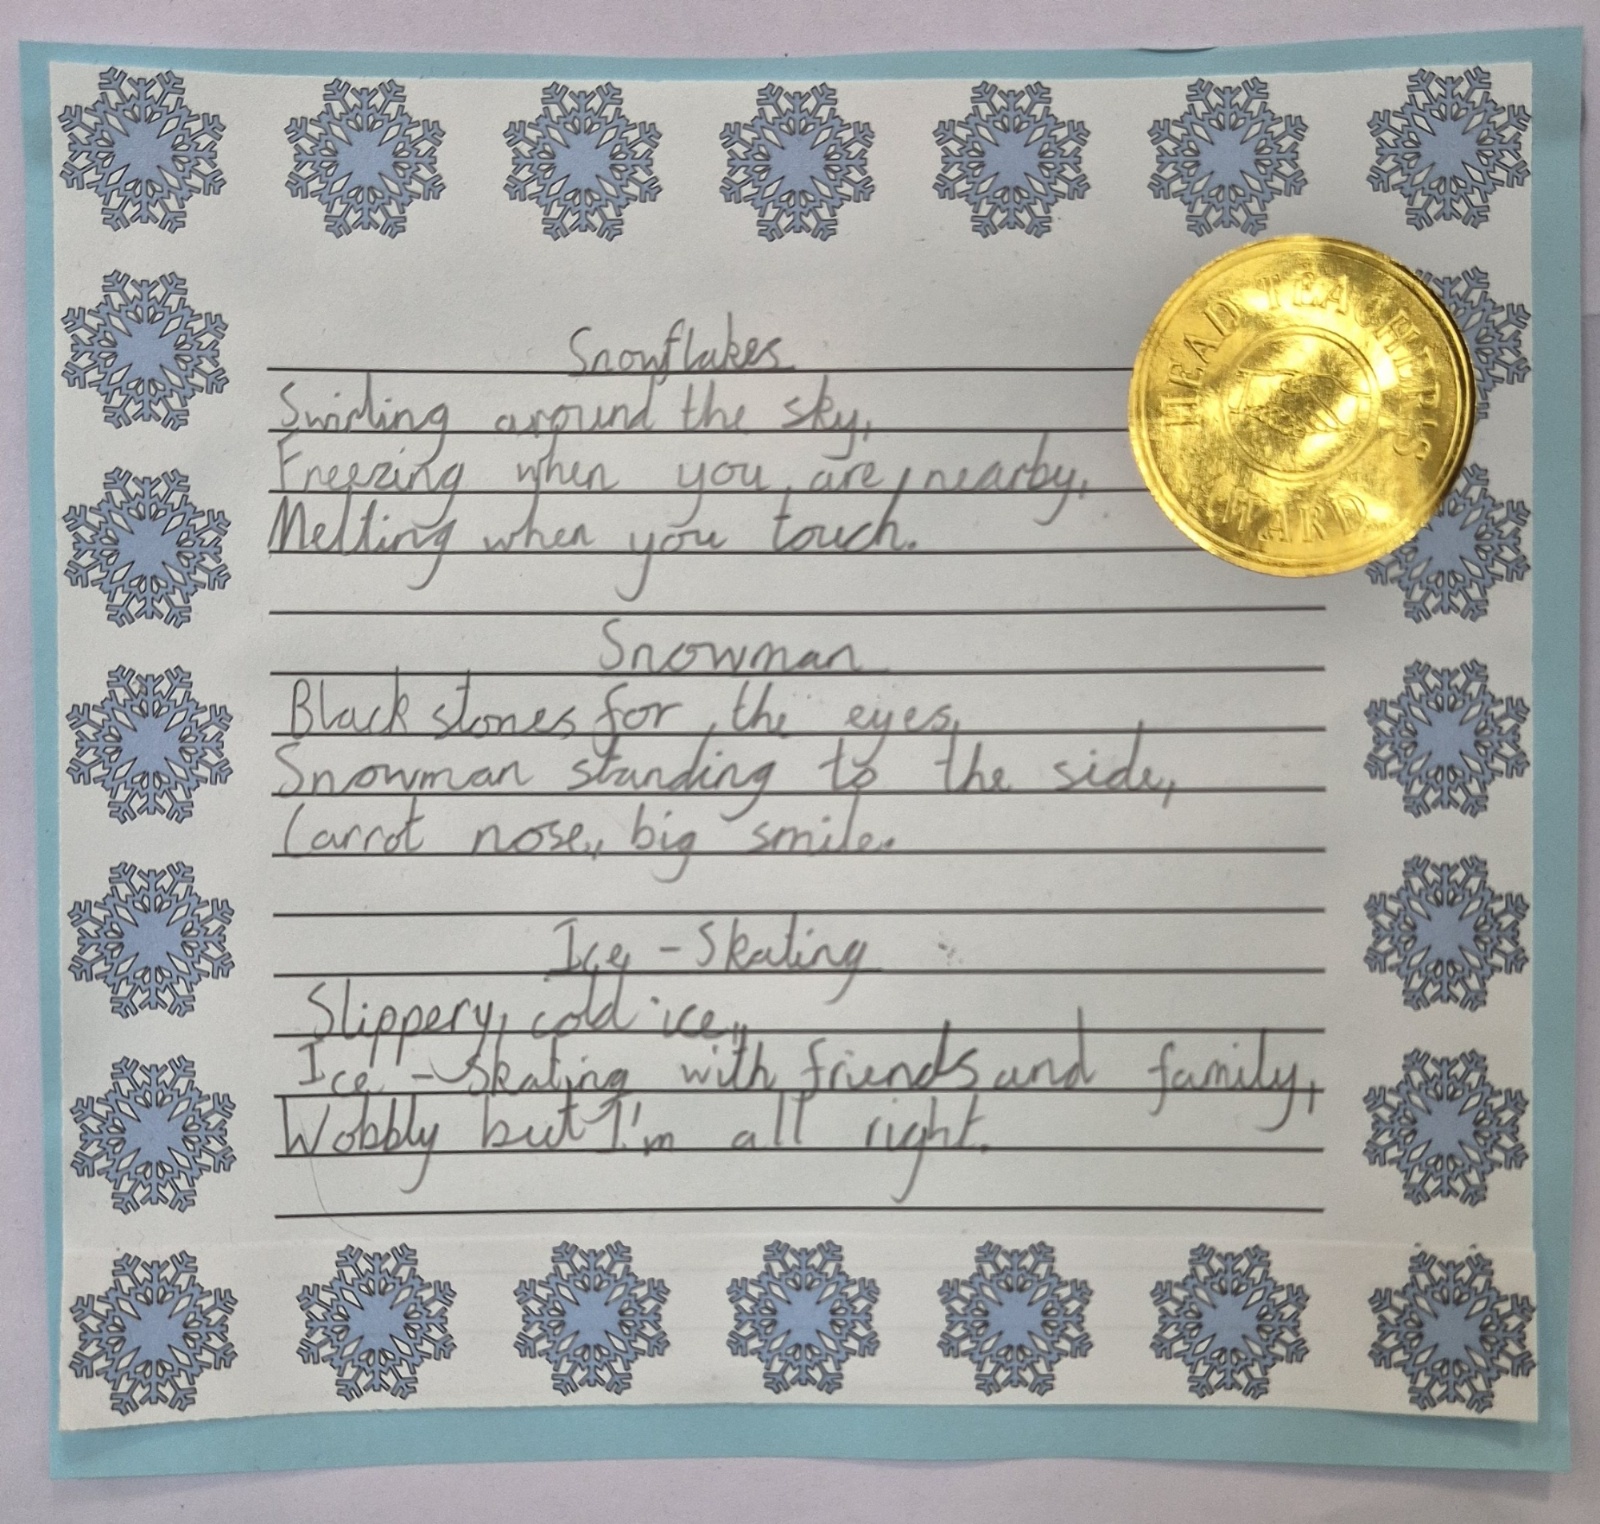 Snowflakes
Swirling around the sky,
Freezing when you are nearby,
Melting when you touch.
Snowman
Black stones for the eyes,
Snowman standing to the side,
Carrot nose, big smile.
Ice-Skating
Slippery, cold ice,
Ice-Skating with friends and family,
Wobbly but I'm all right.
HEAD TEACHER'S
AWARD